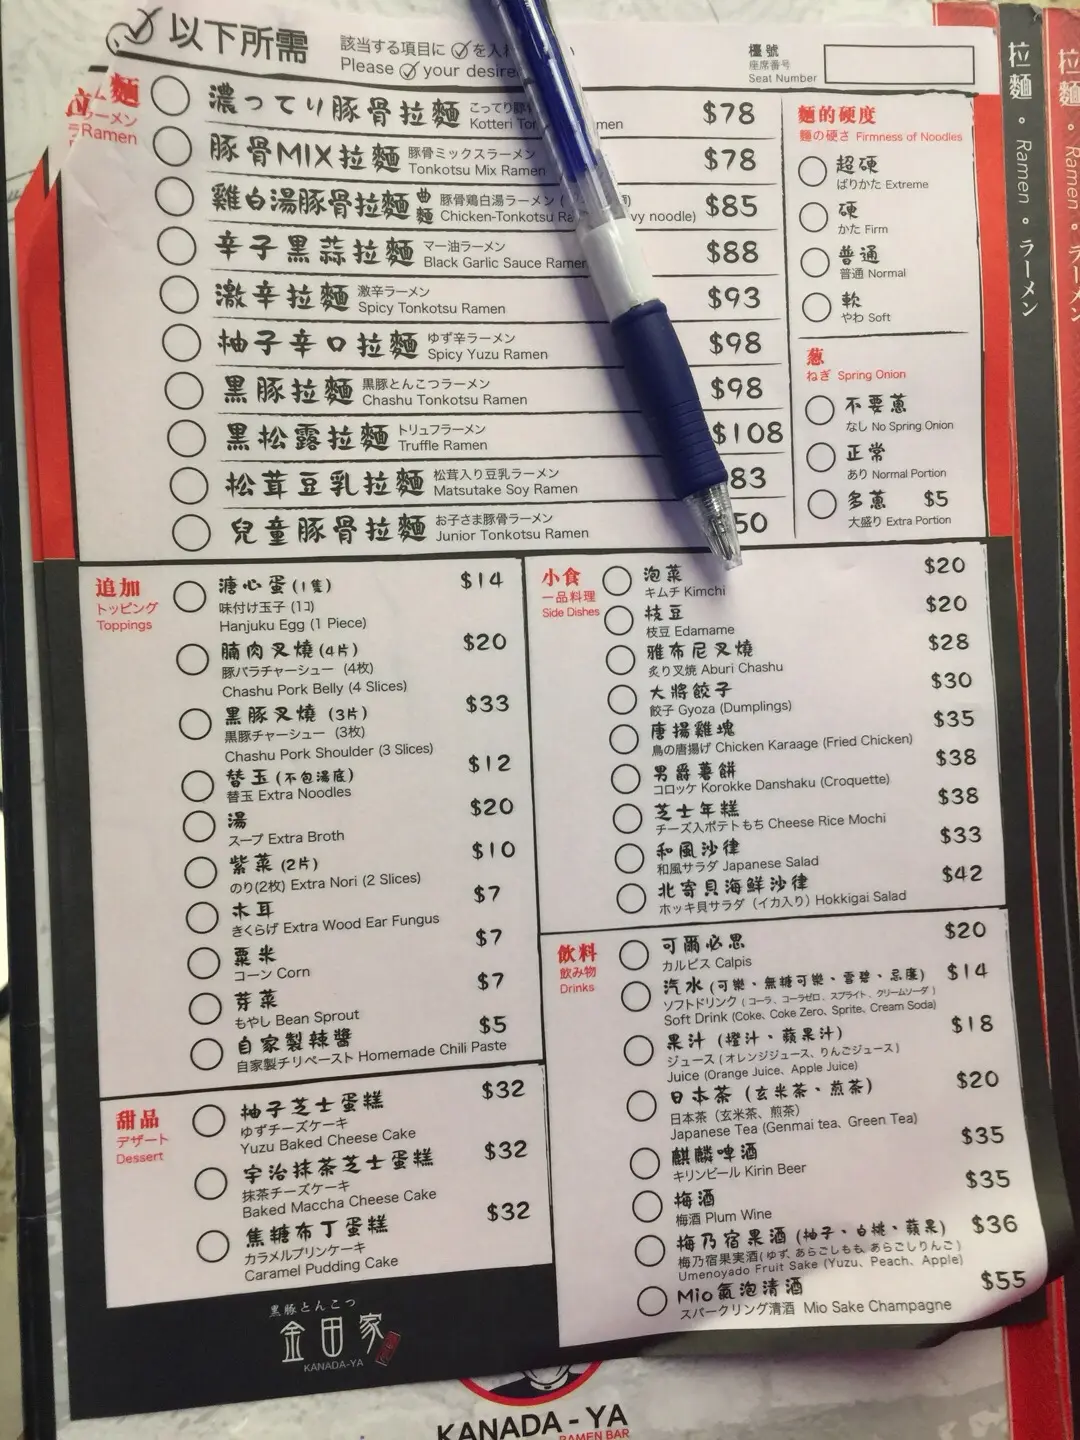 以下所需
該当する項目に
を入れ
Please
your desire
檯號
座席番号
Seat Number
拉麵
ラーメン
Ramen
濃ってり豚骨拉麵
こってり豚
Kotteri Ton
men
$78
豚骨MIX拉麵
豚骨ミックスラーメン
Tonkotsu Mix Ramen
$78
雞白湯豚骨拉麵
曲麵
豚骨鶏白湯ラーメン (
Chicken-Tonkotsu Ra
vy noodle)
$85
辛子黒蒜拉麵
マー油ラーメン
Black Garlic Sauce Ramen
$88
激辛拉麵
激辛ラーメン
Spicy Tonkotsu Ramen
$93
柚子辛口拉麵
ゆず辛ラーメン
Spicy Yuzu Ramen
$98
黒豚拉麵
黒豚とんこつラーメン
Chashu Tonkotsu Ramen
$98
黒松露拉麵
トリュフラーメン
Truffle Ramen
$108
松茸豆乳拉麵
松茸入り豆乳ラーメン
Matsutake Soy Ramen
83
兒童豚骨拉麵
お子さま豚骨ラーメン
Junior Tonkotsu Ramen
50
麵的硬度
麵の硬さ Firmness of Noodles
超硬
ばりかた Extreme
硬
かた Firm
普通
普通 Normal
軟
やわ Soft
葱
ねぎ Spring Onion
不要蔥
なし No Spring Onion
正常
あり Normal Portion
多蔥 $5
大盛り Extra Portion
追加
トッピング
Toppings
溏心蛋 (1隻) $14
味付け玉子 (1コ)
Hanjuku Egg (1 Piece)
腩肉叉燒 (4片) $20
豚バラチャーシュー (4枚)
Chashu Pork Belly (4 Slices)
黒豚叉燒 (3片) $33
黒豚チャーシュー (3枚)
Chashu Pork Shoulder (3 Slices)
替玉 (不包湯底) $12
替玉 Extra Noodles
湯 $20
スープ Extra Broth
紫菜 (2片) $10
のり(2枚) Extra Nori (2 Slices)
木耳 $7
きくらげ Extra Wood Ear Fungus
粟米 $7
コーン Corn
芽菜 $7
もやし Bean Sprout
自家製辣醬 $5
自家製チリペースト Homemade Chili Paste
甜品
デザート
Dessert
柚子芝士蛋糕 $32
ゆずチーズケーキ
Yuzu Baked Cheese Cake
宇治抹茶芝士蛋糕 $32
抹茶チーズケーキ
Baked Maccha Cheese Cake
焦糖布丁蛋糕 $32
カラメルプリンケーキ
Caramel Pudding Cake
小食
一品料理
Side Dishes
泡菜 $20
キムチ Kimchi
枝豆 $20
枝豆 Edamame
雅布尼叉燒 $28
炙り叉焼 Aburi Chashu
大將餃子 $30
餃子 Gyoza (Dumplings)
唐揚雞塊 $35
鳥の唐揚げ Chicken Karaage (Fried Chicken)
男爵薯餅 $38
コロッケ Korokke Danshaku (Croquette)
芝士年糕 $38
チーズ入ポテトもち Cheese Rice Mochi
和風沙律 $33
和風サラダ Japanese Salad
北寄貝海鮮沙律 $42
ホッキ貝サラダ（イカ入り）Hokkigai Salad
飲料
飲み物
Drinks
可爾必思 $20
カルピス Calpis
汽水 (可樂、無糖可樂、雪碧、忌廉) $14
ソフトドリンク ( コーラ、コーラゼロ、スプライト、クリームソーダ )
Soft Drink (Coke, Coke Zero, Sprite, Cream Soda)
果汁 (橙汁、蘋果汁) $18
ジュース ( オレンジジュース、りんごジュース )
Juice (Orange Juice、Apple Juice)
日本茶 (玄米茶、煎茶) $20
日本茶（玄米茶、煎茶）
Japanese Tea (Genmai tea、Green Tea)
麒麟啤酒 $35
キリンビール Kirin Beer
梅酒 $35
梅酒 Plum Wine
梅乃宿果酒 (柚子、白桃、蘋果) $36
梅乃宿果実酒(ゆず, あらごしもも, あらごしりんご)
Umenoyado Fruit Sake (Yuzu、Peach、Apple)
Mio氣泡清酒 $55
スパークリング清酒 Mio Sake Champagne
黒豚とんこつ
金田家
KANADA-YA
KANADA-YA
RAMEN BAR
拉麵。Ramen。ラーメン
拉麵。Ramen。ラーメン